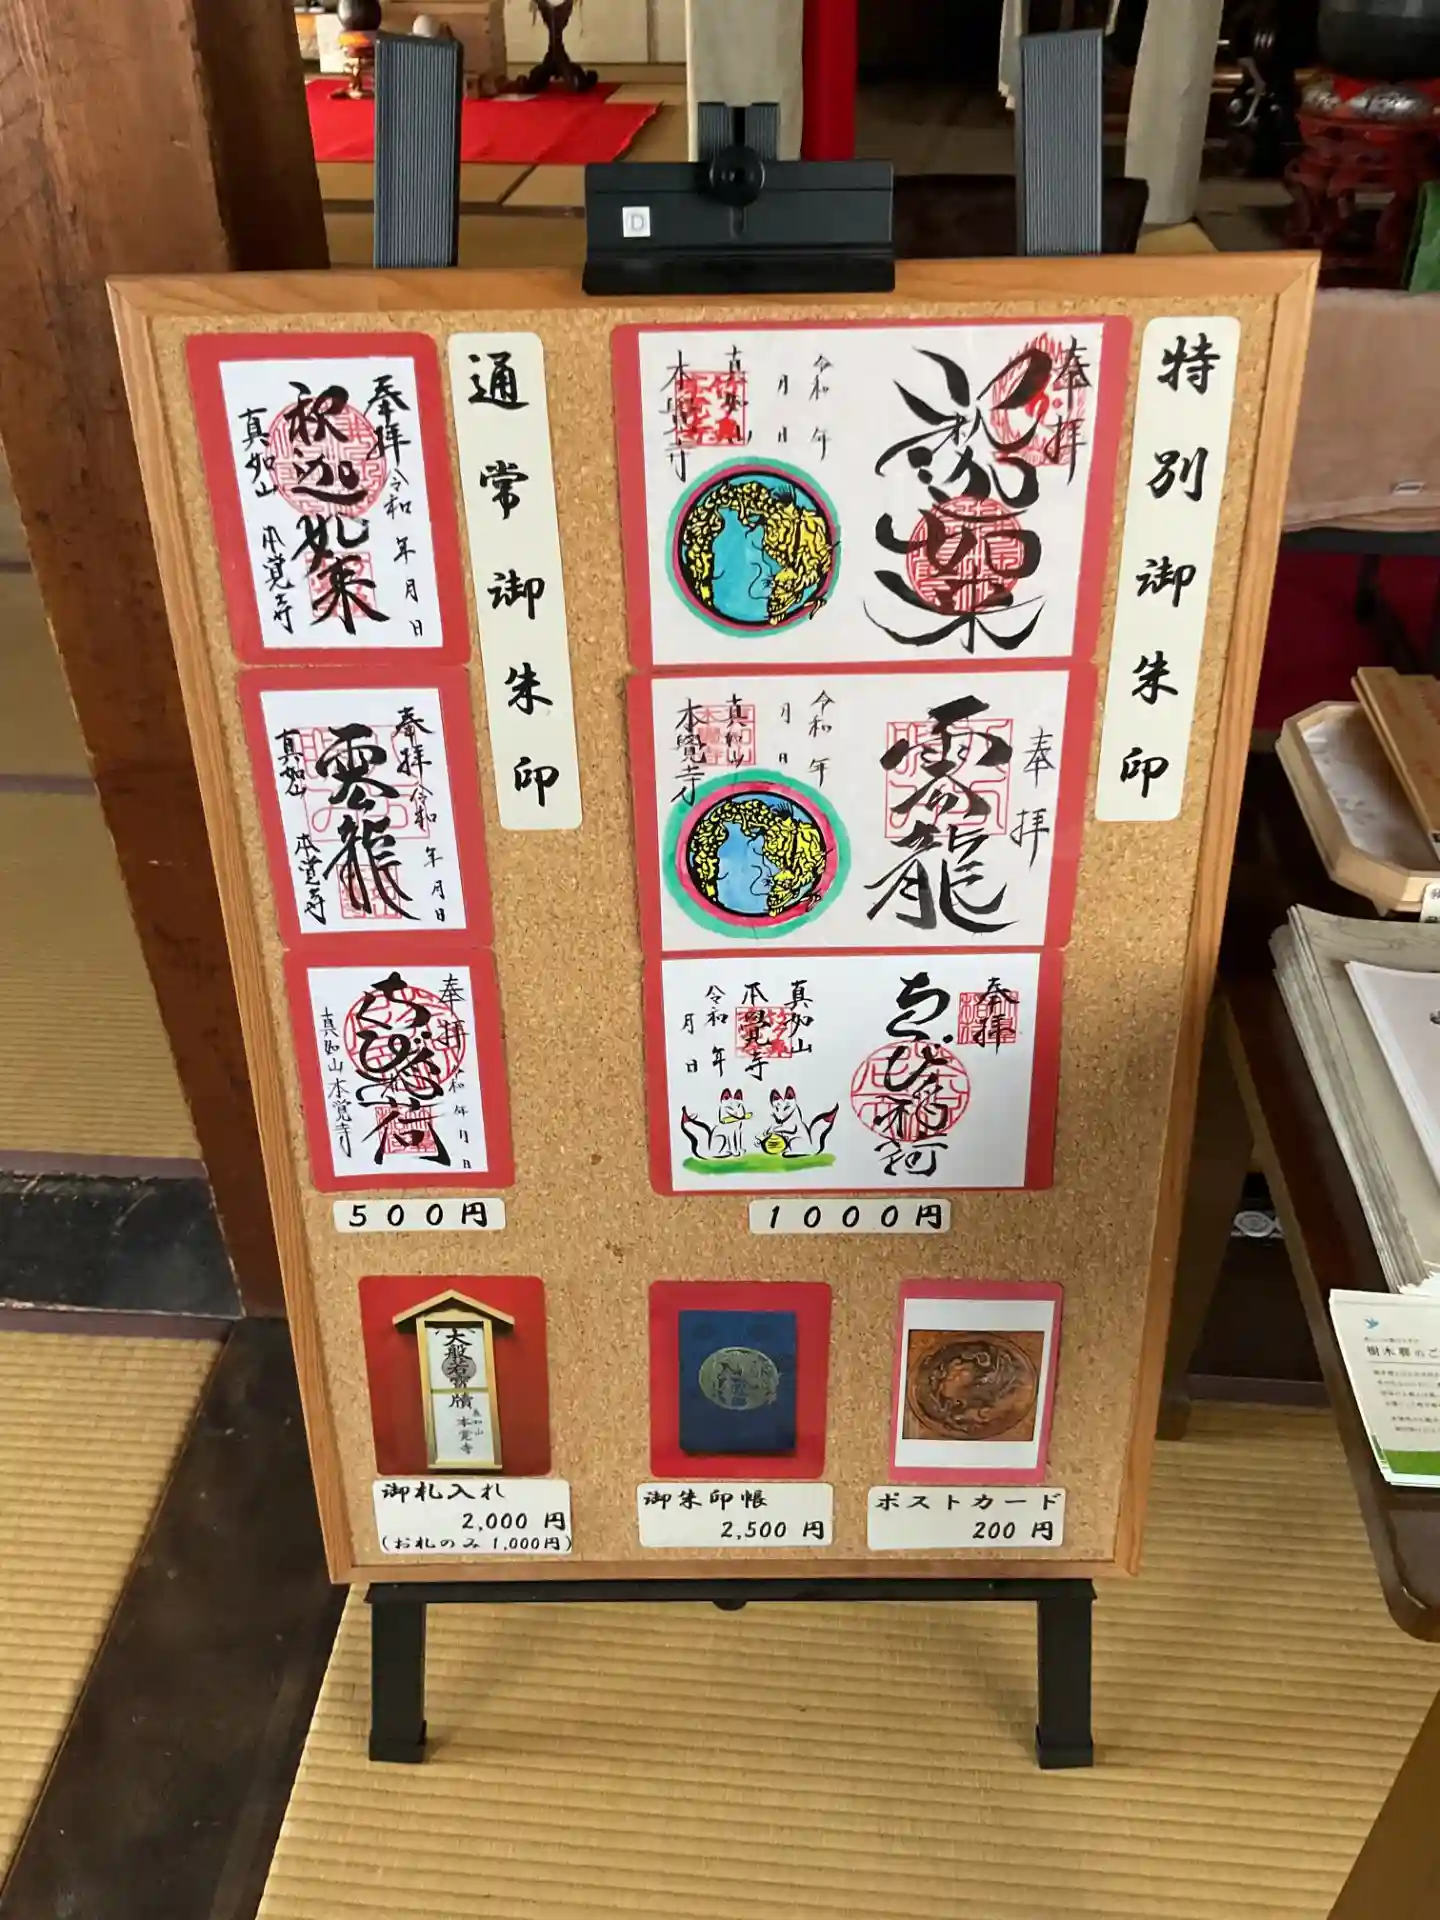 D
通常御朱印
奉拝
令和 年 月 日
釈迦如来
真如山 本覚寺
奉拝
令和 年 月 日
雲龍
真如山 本覚寺
奉拝
令和 年 月 日
ちび稲荷
真如山 本覚寺
500円
特別御朱印
奉拝
釈迦如来
令和 年
月 日
真如山
本覺寺
奉拝
雲龍
令和 年
月 日
真如山
本覺寺
奉拝
ちび稲荷
真如山
本覺寺
令和 年
月 日
1000円
大般若寶牘
真如山
本覚寺
御札入れ
2,000 円
(お札のみ 1,000円)
御朱印帳
2,500 円
ポストカード
200 円
樹木葬のご